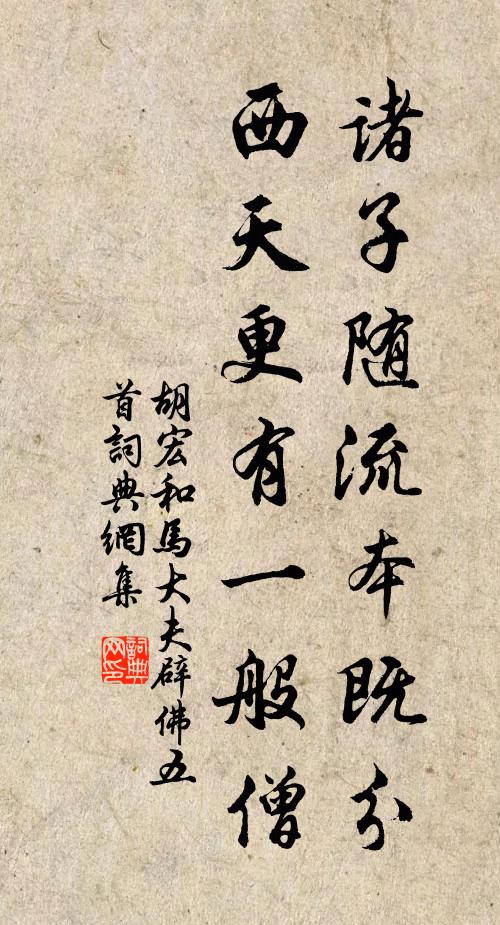 诸子随流本既分
西天更有一般僧
胡宏和馬大夫辟佛五
首詞典網集
詞典
网印